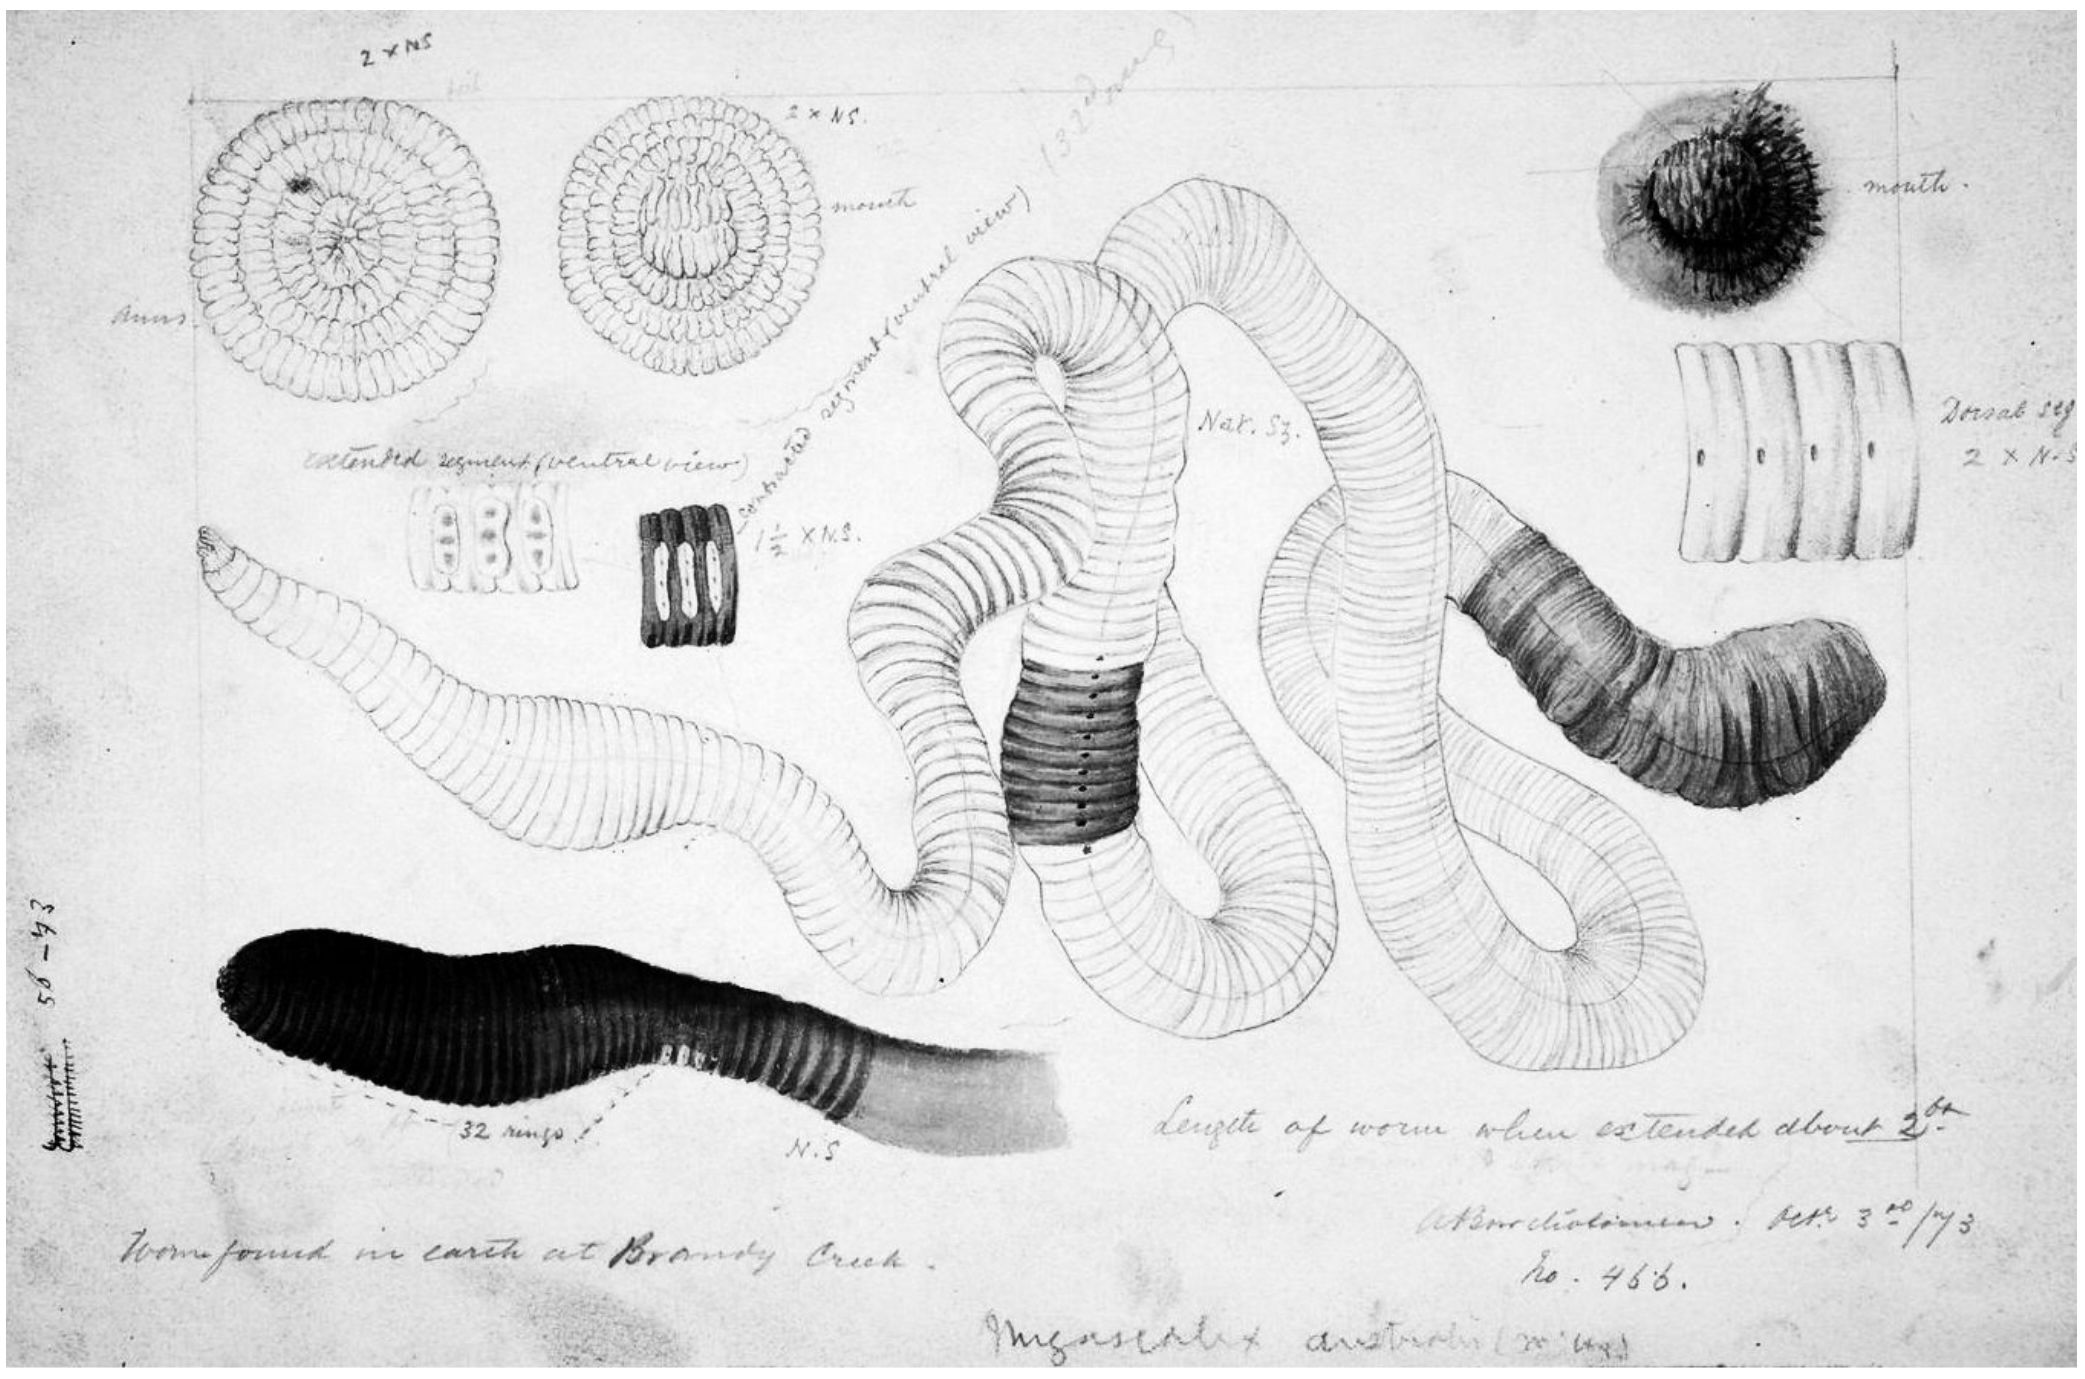 2 × NS
2 × NS.
mouth
mouth.
anus.
contracted segment (ventral view)
Nat. Sz.
Dorsal seg
2 × N.S
extended segment (ventral view)
1 1/2 × N.S.
56-73
32 rings
N.S
Length of worm when extended about 2 ft
A Bartholomew. Octr 3rd/73
No. 466.
Worm found in earth at Brandy Creek.
Megascolex australis